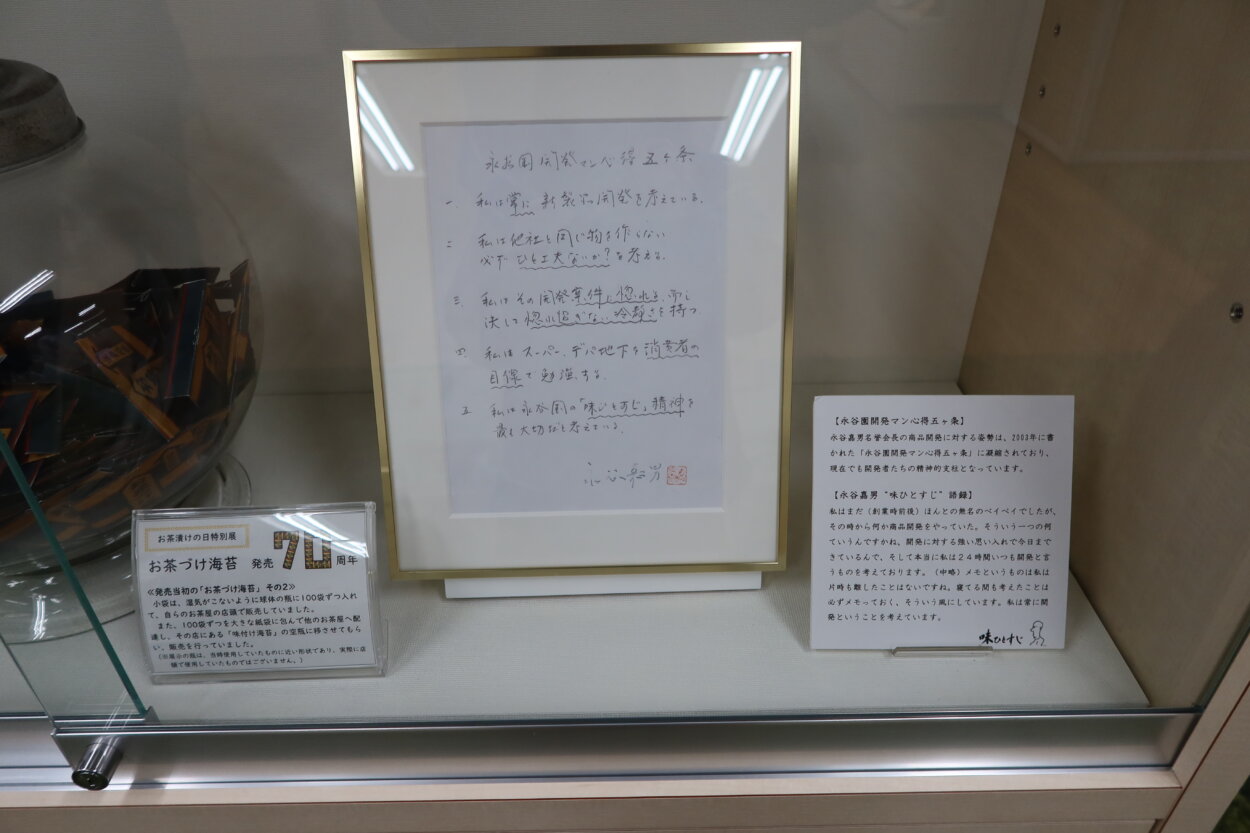 永谷園開発マン心得五ヶ条
一、私は常に新製品の開発を考えている。
二 私は他社と同じ物を作らない
必ずひと工夫ないか?を考える。
三、私はその開発案件に惚れる、而し
決して惚れ過ぎない冷静さを持つ
四、私はスーパー、デパ地下を消費者の
目線で勉強する。
五 私は永谷園の「味ひとすじ」精神を
最も大切だと考えている。
永谷嘉男
お茶漬けの日特別展
お茶づけ海苔 発売70周年
≪発売当初の「お茶づけ海苔」その2≫
小袋は、湿気がこないように球体の瓶に100袋ずつ入れ
て、自らのお茶屋の店頭で販売していました。
また、100袋ずつを大きな紙袋に包んで他のお茶屋へ配
達し、その店にある「味付け海苔」の空瓶に移させてもら
い、販売を行っていました。
(※展示の瓶は、当時使用していたものに近い形状であり、実際に店
頭で使用していたものではございません。)
【永谷園開発マン心得五ヶ条】
永谷嘉男名誉会長の商品開発に対する姿勢は、2003年に書
かれた「永谷園開発マン心得五ヶ条」に凝縮されており、
現在でも開発者たちの精神的支柱となっています。
【永谷嘉男“味ひとすじ”語録】
私はまだ(創業時前後)ほんとの無名のペイペイでしたが、
その時から何か商品開発をやっていた。そういう一つの何
ていうんですかね、開発に対する強い思い入れで今日まで
きているんで、そして本当に私は24時間いつも開発と言
うものを考えております。(中略)メモというものは私は
片時も離したことはないですね。寝てる間も考えたことは
必ずメモっておく、そういう風にしています。私は常に開
発ということを考えています。
味ひとすじ